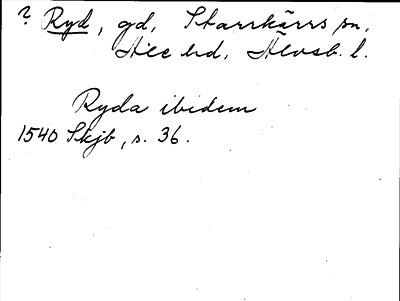 ? Ryd, gd, Starrkärrs sn,
Ale hd, Älvsb. l.
Ryda ibidem
1540 Skjb, s. 36.